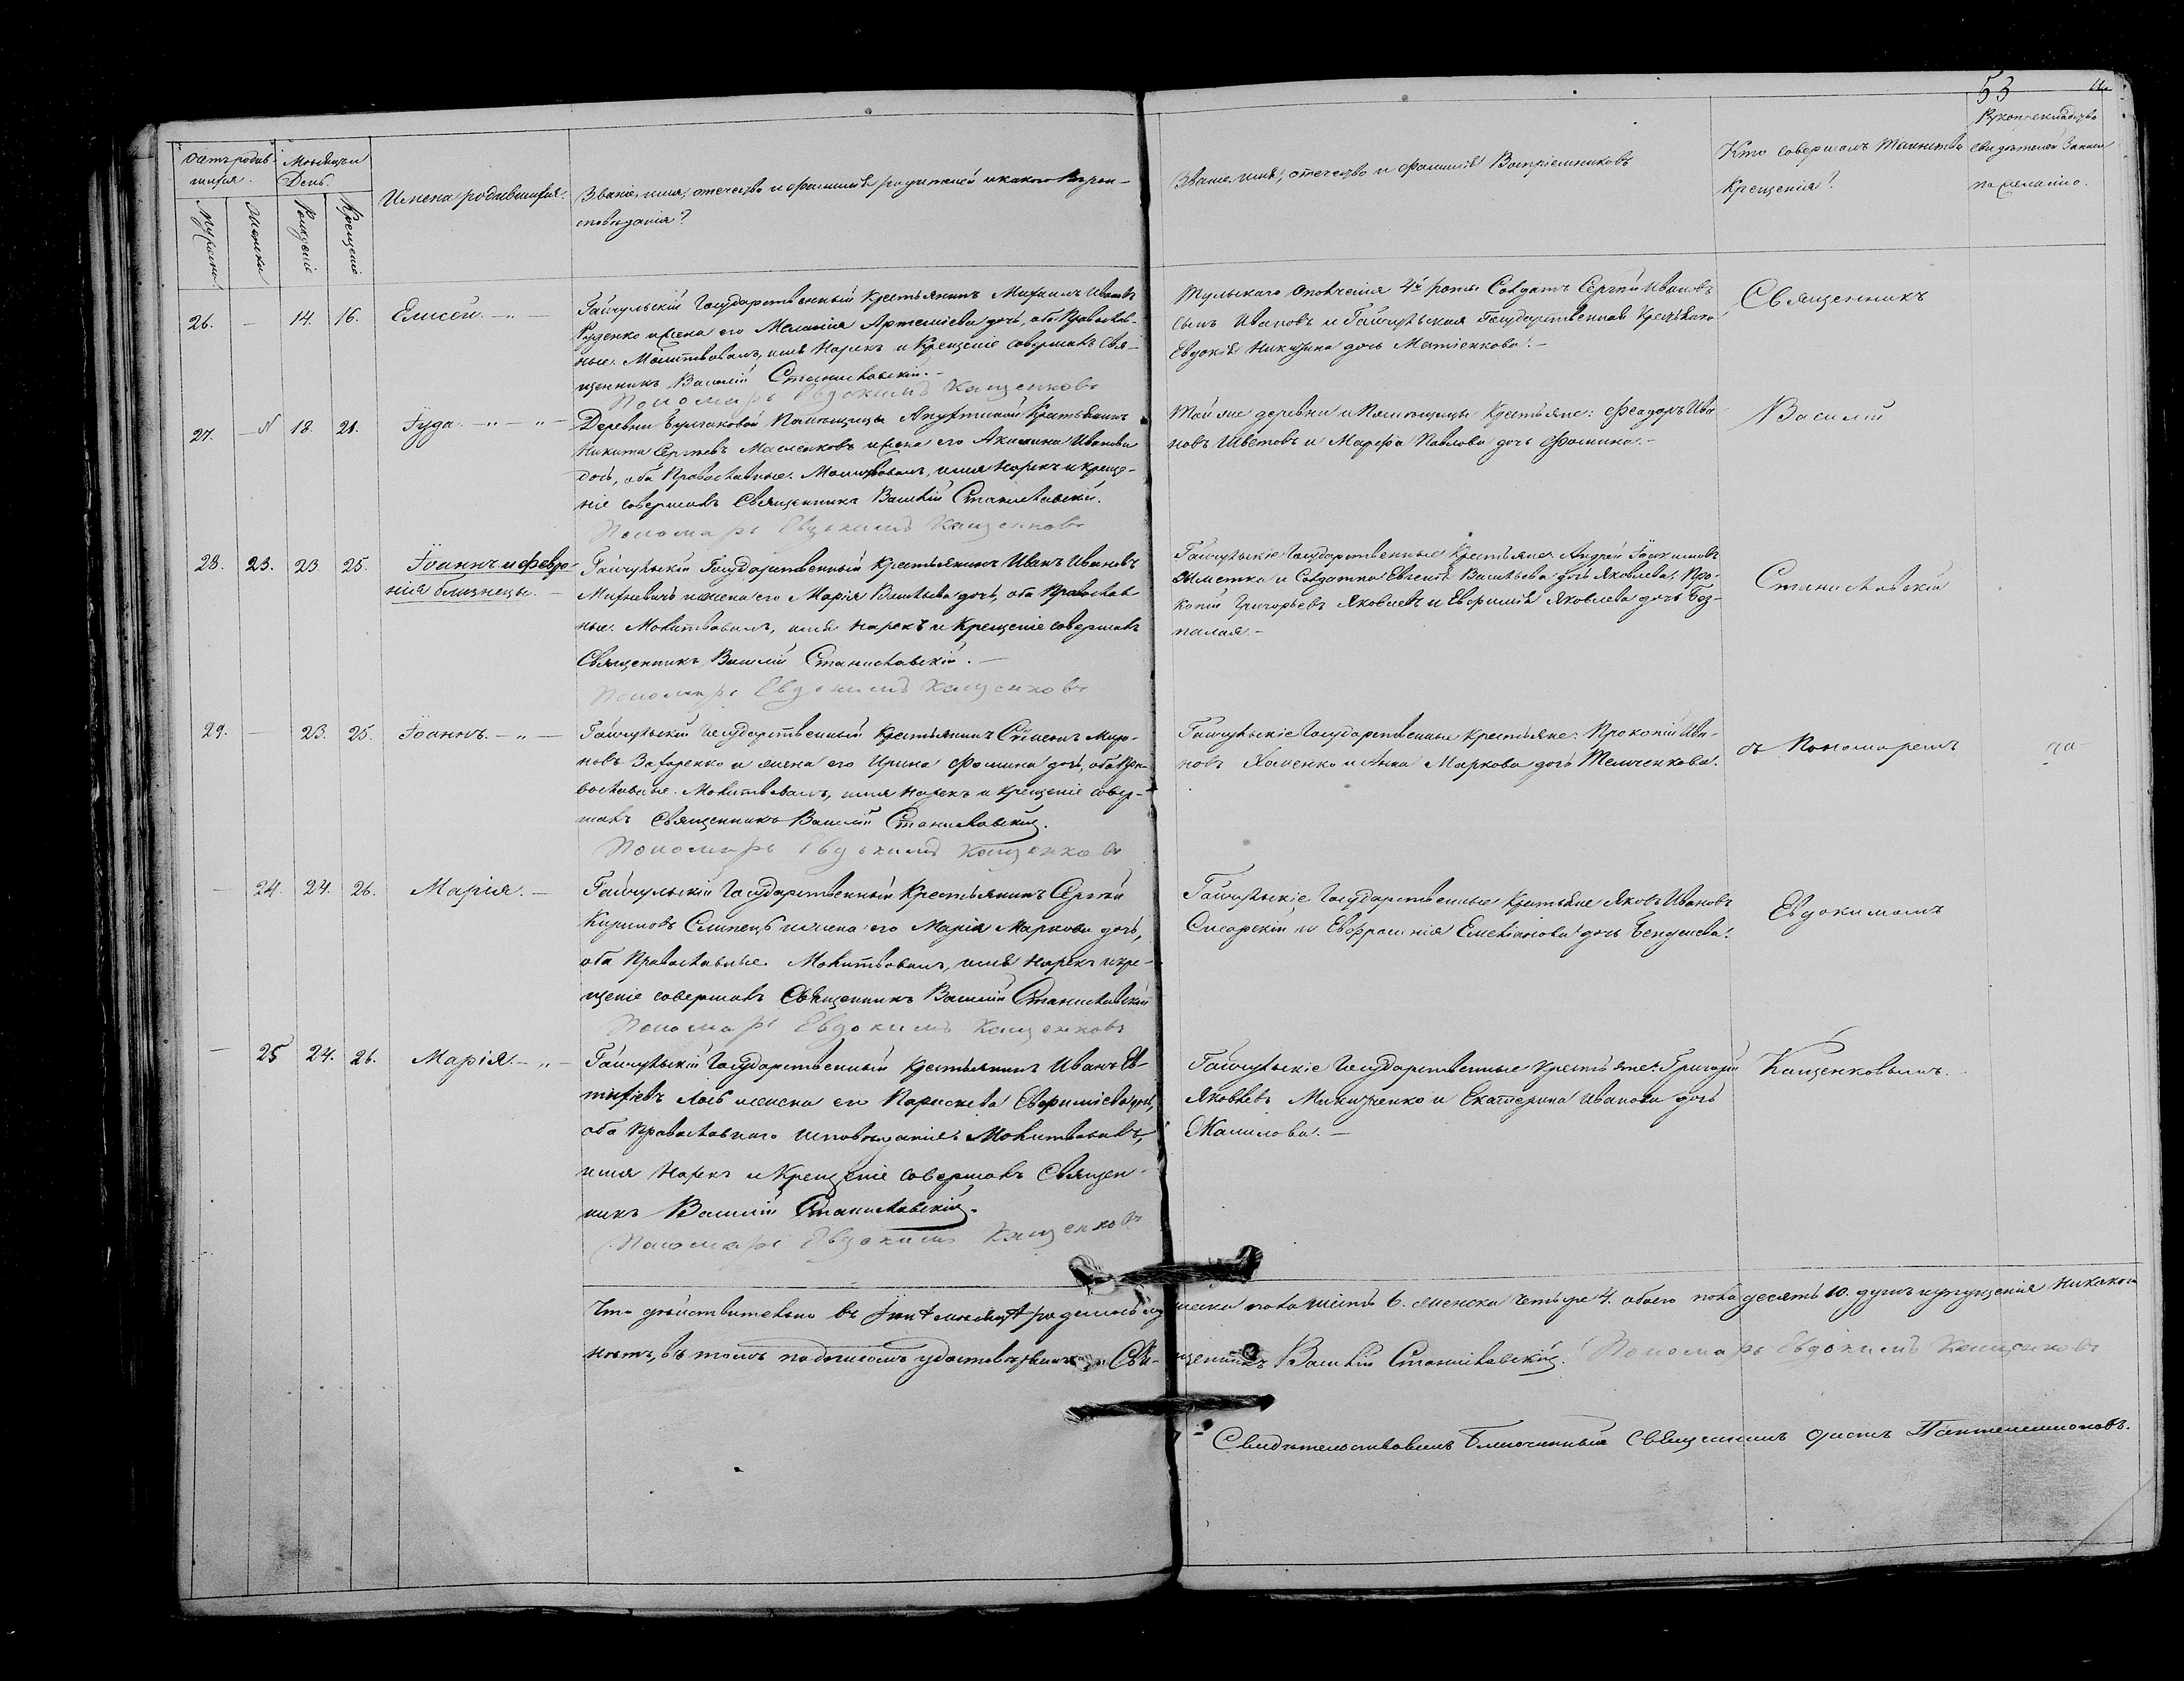 53
Счетъ родив-
шихся.
Мѣсяцъ и
День.
Мужеска
Женска
Рожденіе
Крещеніе
Имена родившихся.
Званіе, имя, отечество и фамилія родителей и какого вѣрои-
сповѣданія?
Званіе, имя, отечество и фамилія Воспріемниковъ
Кто совершалъ Таинство
Крещенія?
Рукоприкладство
свидѣтелей записи
по желанію.
26. — 14. 16. Елисей. — „ —
Гайчульскій Государственный Крестьянинъ Михаилъ Ивановъ
Руденко и жена его Меланія Артеміева дочь, оба Православ-
ные. Молитвовалъ, имя Нарекъ и Крещеніе совершалъ Свя-
щенникъ Василій Станиславскій. —
Пономарь Евдокимъ Кащенковъ
Тульскаго Ополченія 4й роты Солдатъ Сергѣй Ивановъ
сынъ Ивановъ и Гайчульская Государственная Крестьянка
Евдокія Никитина дочь Матіенкова. —
Священникъ
27. — 18. 21. Іуда. — „ — „ —
Деревни П
Никита Сергѣевъ Масленковъ и жена его Акилина Иванова
дочь, оба Православные. Молитвовалъ, имя Нарекъ и Креще-
ніе совершалъ Священникъ Василій Станиславскій.
Пономарь Евдокимъ Кащенковъ
Той же деревни и Помѣщицы Крестьяне: Феодоръ Ива-
новъ Цвѣтовъ и Марфа Павлова дочь Фомина. —
Василій
28. 23. 23. 25. Іоаннъ и Февро-
нія близнецы. —
Гайчульскій Государственный Крестьянинъ Иванъ Ивановъ
Михневичъ и жена его Марія Васильева дочь, оба Православ-
ные. Молитвовалъ, имя Нарекъ и Крещеніе совершалъ
Священникъ Василій Станиславскій. —
Пономарь Евдокимъ Кащенковъ
Гайчульскіе Государственные Крестьяне: Андрей Іоакимовъ
и Солдатка Евгенія Васильева дочь Яковлева; Про-
копій Григорьевъ Яковлевъ и Евфимія Яковлева дочь Без-
палая. —
Станиславскій
29. — 23. 25. Іоаннъ. — „ —
Гайчульскій Государственный Крестьянинъ Сѵмеонъ Миро-
новъ Захаренко и жена его Ирина Фомина дочь, оба Пра-
вославные. Молитвовалъ, имя Нарекъ и Крещеніе совер-
шалъ Священникъ Василій Станиславскій.
Пономарь Евдокимъ Кащенковъ
Гайчульскіе Государственные Крестьяне: Прокопій Ива-
новъ Хоменко и Анна Маркова дочь Темченкова.
съ Пономаремъ
— 24. 24. 26. Марія. —
Гайчульскій Государственный Крестьянинъ Сергѣй
Кириловъ Слипецъ и жена его Марія Маркова дочь,
оба Православные. Молитвовалъ, имя Нарекъ и кре-
щеніе совершалъ Священникъ Василій Станиславскій
Пономарь Евдокимъ Кащенковъ
Гайчульскіе Государственные Крестьяне Яковъ Ивановъ
и Евфросинія Емельянова дочь
Евдокимомъ
— 25 24. 26. Марія. — „ —
Гайчульскій Государственный Крестьянинъ Иванъ Ев-
тихіевъ и жена его Параскева Евфиміева дочь,
оба Православнаго исповѣданія. Молитвовалъ,
имя Нарекъ и Крещеніе совершалъ Священ-
никъ Василій Станиславскій.
Пономарь Евдокимъ Кащенковъ
Гайчульскіе Государственные Крестьяне: Григорій
Яковлевъ Микитенко и Екатерина Иванова дочь
Жалилова. —
Кащенковымъ. —
Что дѣйствительно въ Іюнѣ мѣсяцѣ родилось мужеска пола шесть 6. женска четыре 4. обоего пола десять 10. душъ и упущенія никакого
нѣтъ, въ томъ подписомъ удостовѣряемъ. Священникъ Василій Станиславскій. Пономарь Евдокимъ Кащенковъ
Свидѣтельствовалъ Благочинный Священникъ Пантелеимоновъ.